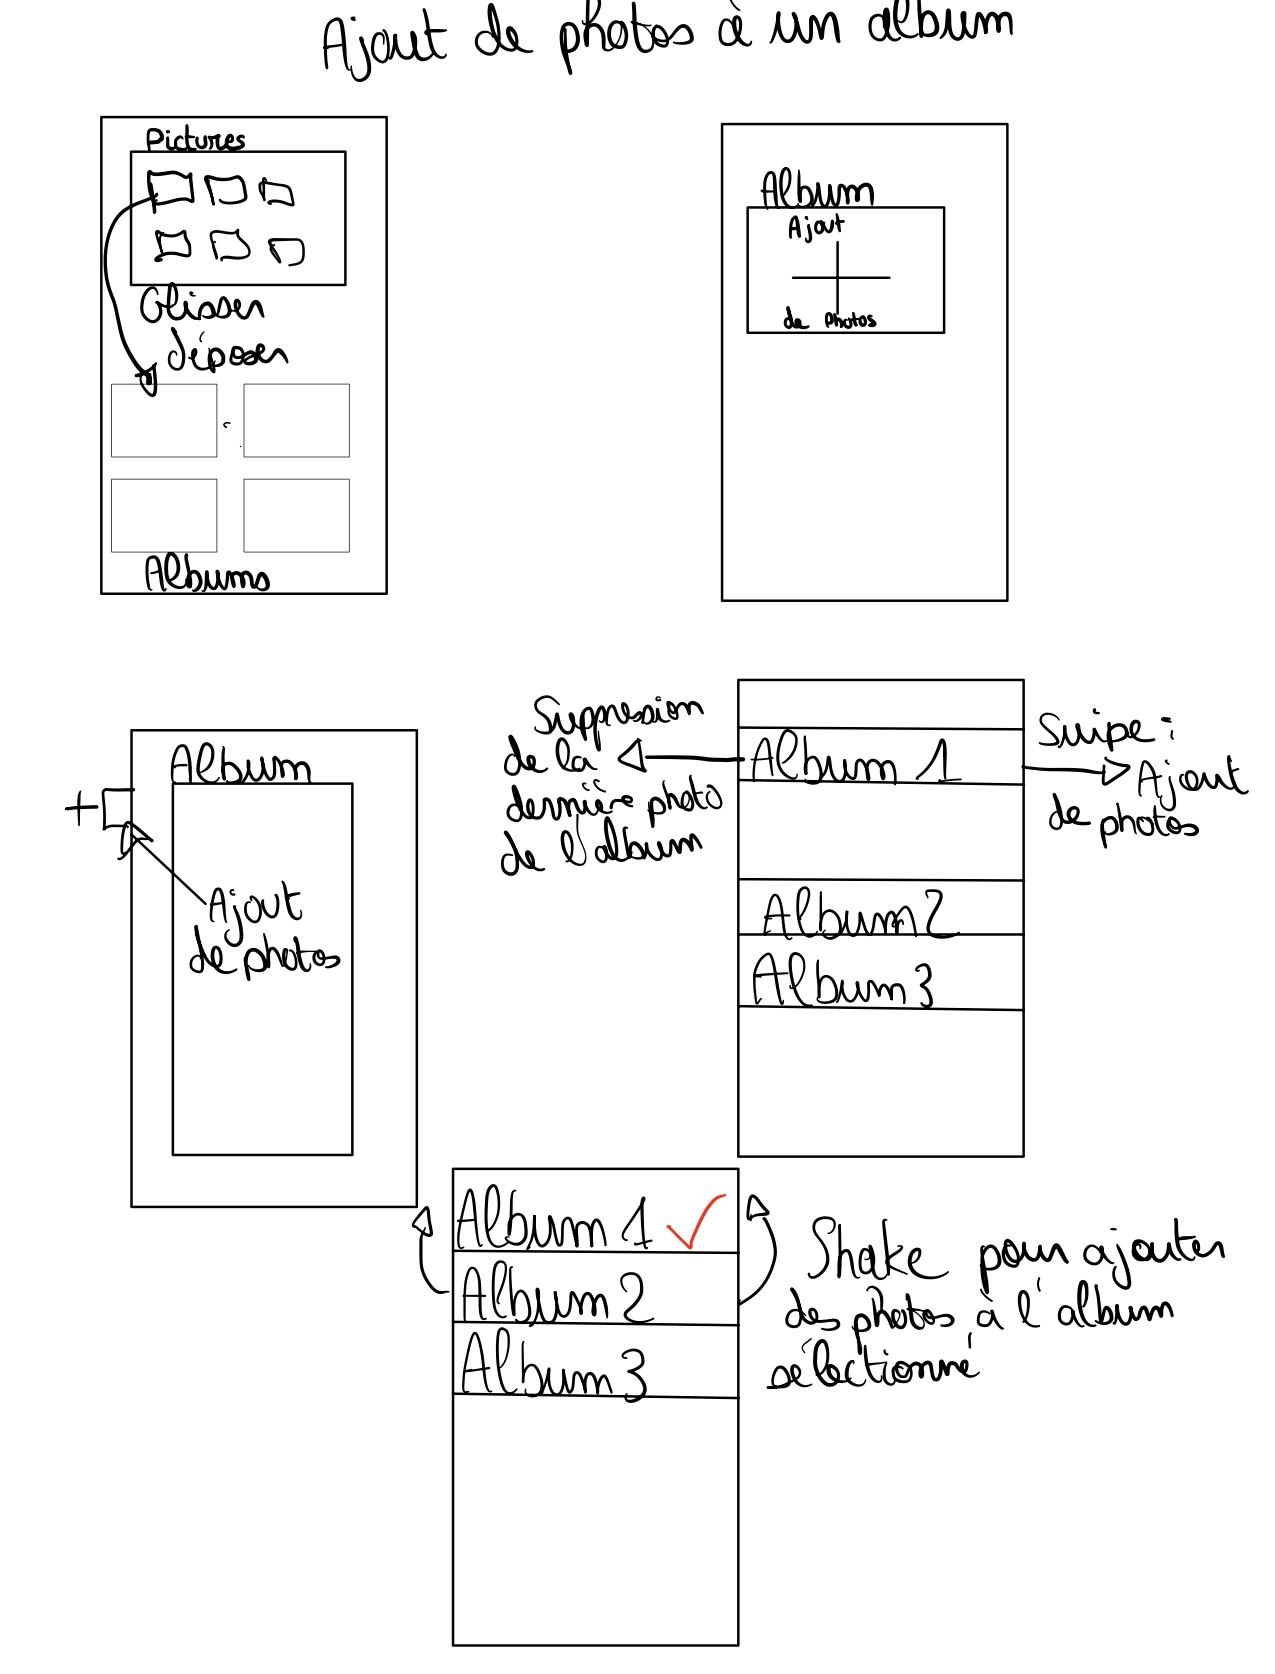 Ajout de photos à un album
Pictures
Glisser
déposer
Albums
Album
Ajout
de photos
Album
+
Ajout
de photos
Suppression
de la
dernière photo
de l'album
Album 1
Album 2
Album 3
Swipe :
Ajout
de photos
Album 1 ✓
Album 2
Album 3
Shake pour ajouter
des photos à l'album
sélectionné